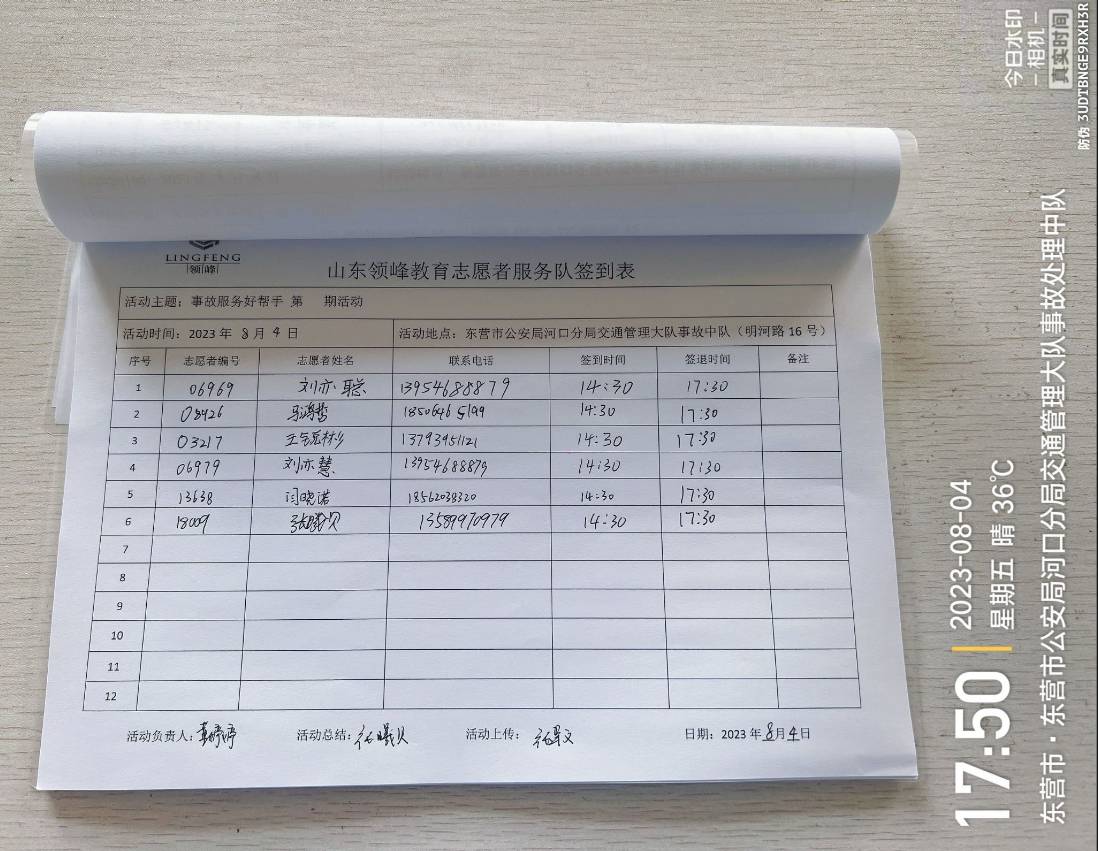 LINGFENG
领峰
山东领峰教育志愿者服务队签到表
活动主题：事故服务好帮手 第 期活动
活动时间：2023 年 8 月 4 日 活动地点：东营市公安局河口分局交通管理大队事故中队（明河路 16 号）
序号 志愿者编号 志愿者姓名 联系电话 签到时间 签退时间 备注
1 06969 刘亦聪 13954688879 14:30 17:30
2 08426 马鸿哲 18506465199 14:30 17:30
3 03217 13793951121 14:30 17:30
4 06979 刘亦慧 13954688879 14:30 17:30
5 13638 闫晓诺 18562038320 14:30 17:30
6 18009 13589970979 14:30 17:30
7
8
9
10
11
12
活动负责人： 活动总结： 活动上传： 日期：2023 年 8 月 4 日
今日水印
- 相机 -
真实时间
防伪 3UDTBNGE9RXH3R
17:50
2023-08-04
星期五 晴 36℃
东营市·东营市公安局河口分局交通管理大队事故处理中队